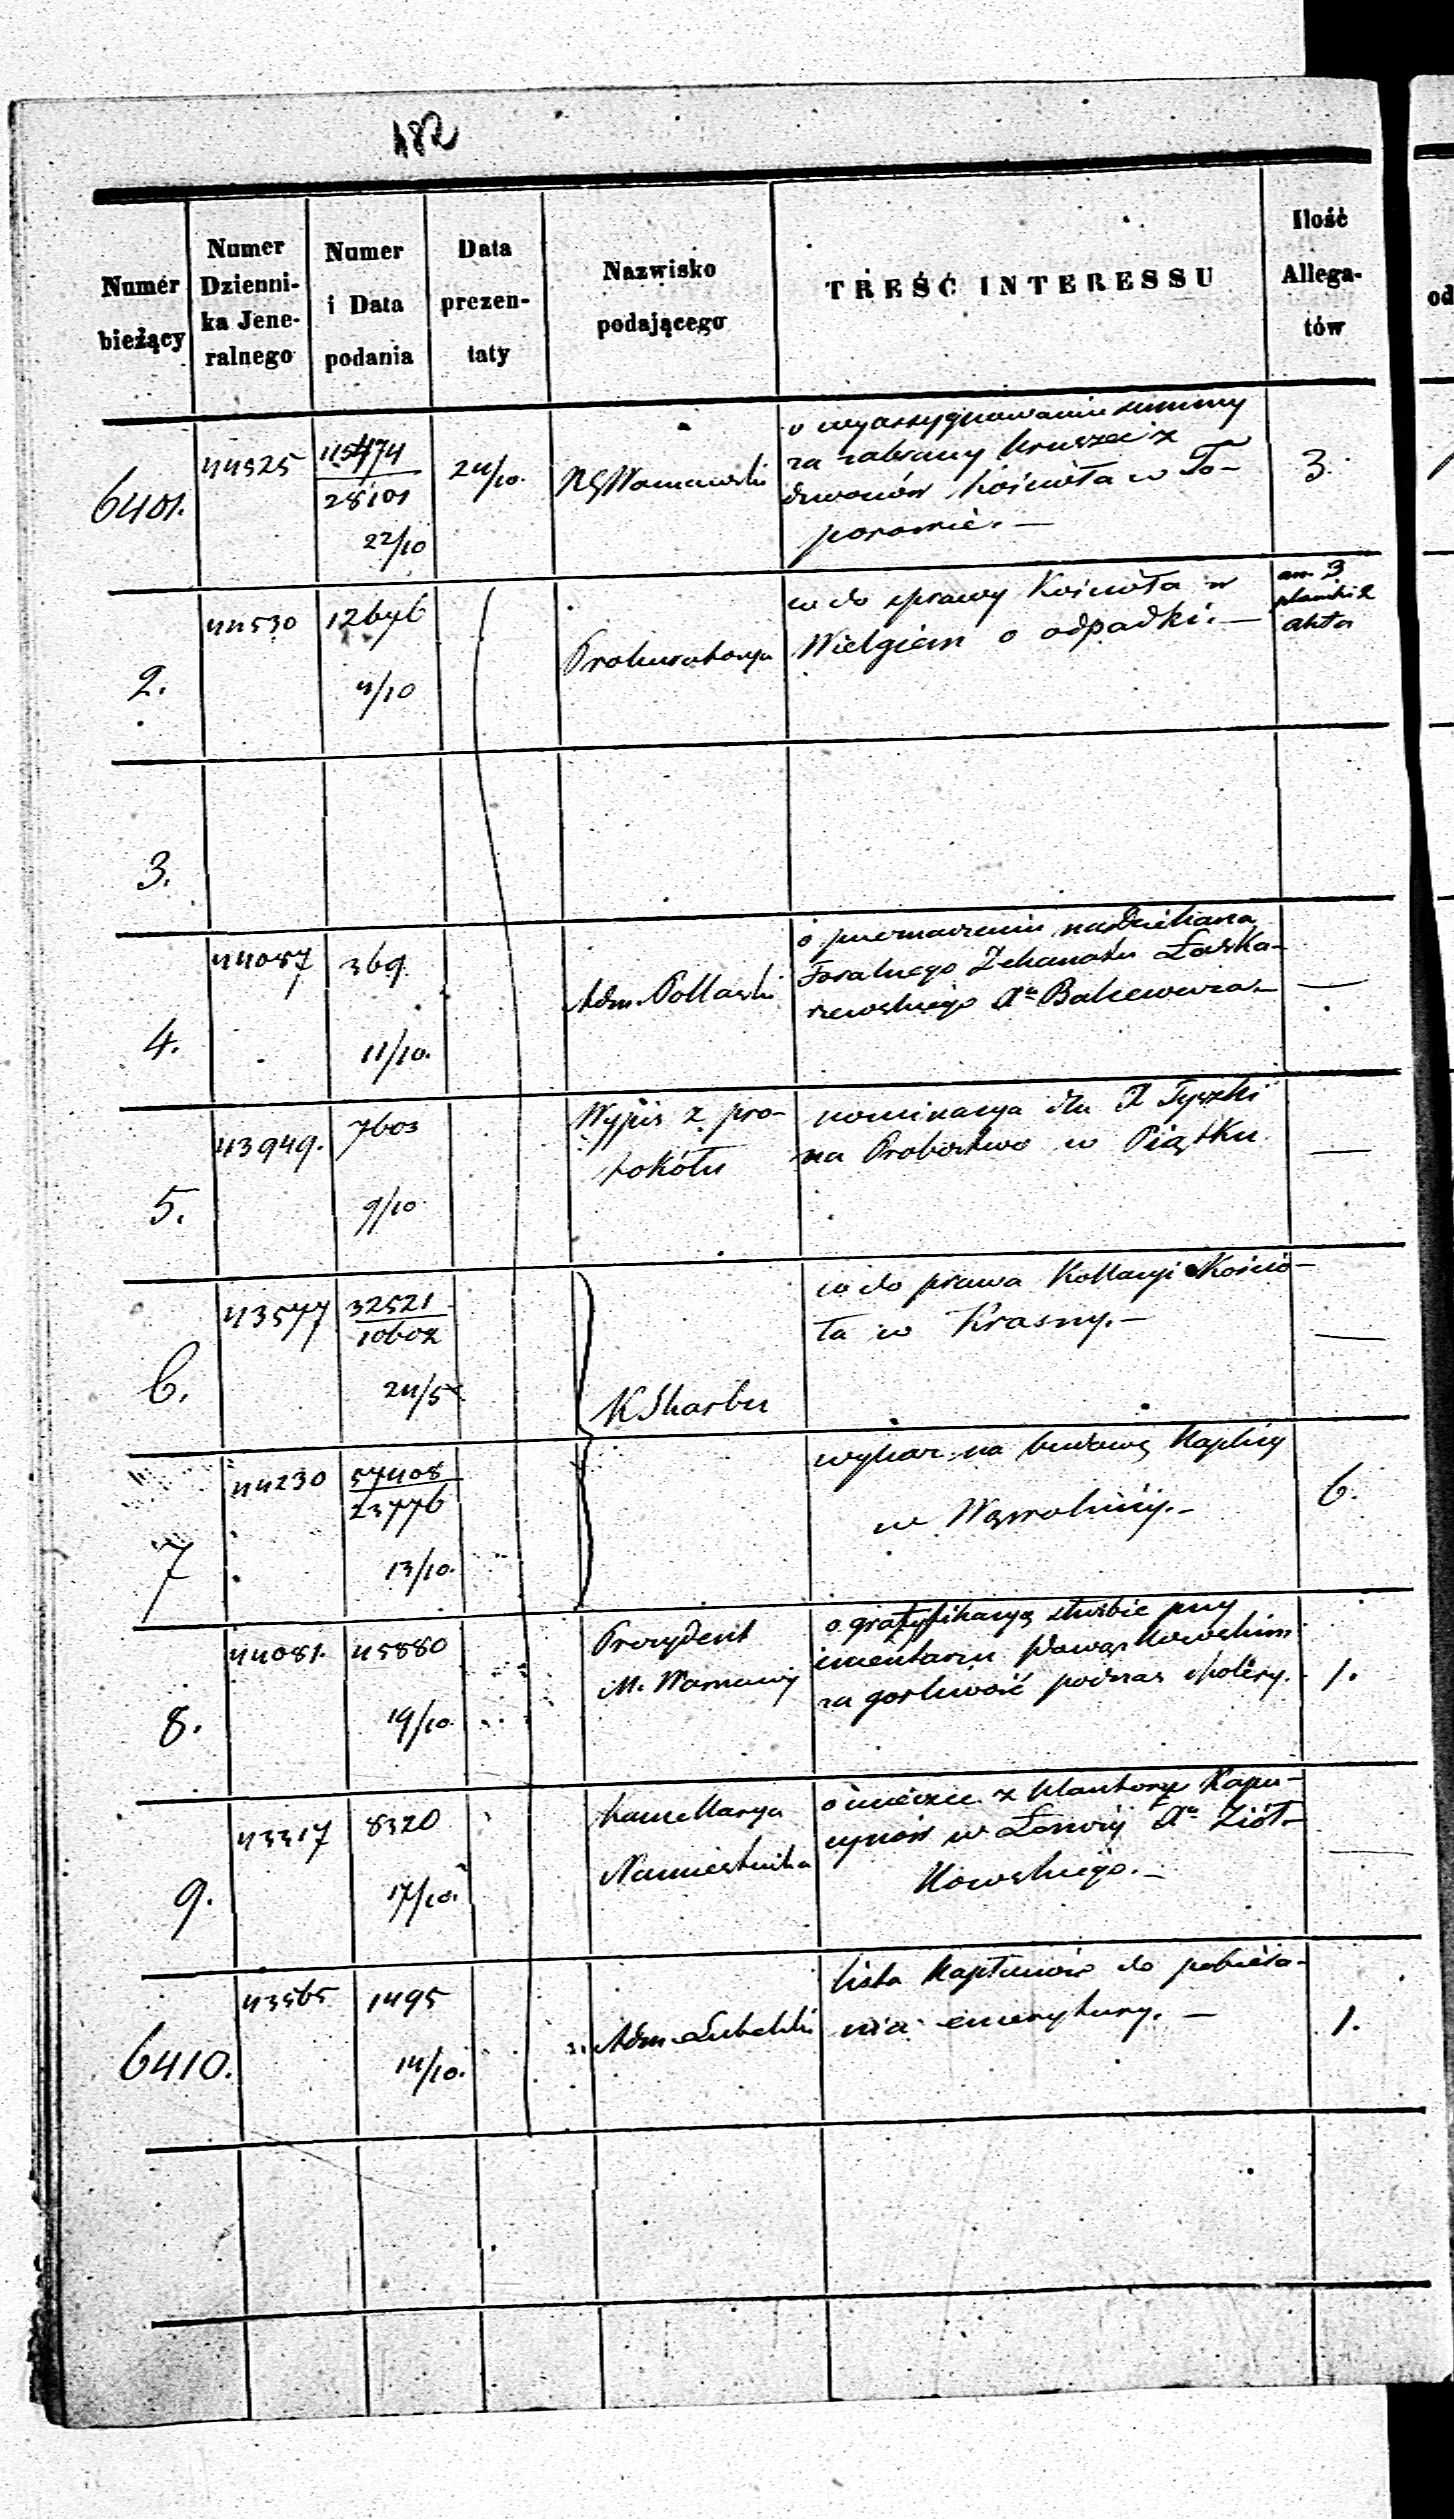 182
Numer bieżący
Numer Dzienni-
ka Jene-
ralnego
Numer
i Data
podania
Data
prezen-
taty
Nazwisko
podającego
TREŚĆ INTERESSU
Ilość
Allega-
tów
od
6401.
44525
28101
22/10
24/10.
o wyassygnowanie summy
za zabrany kruszec z
dzwonów Kościoła w To-
porowie. —
3.
2.
44530
12646
4/10
Prokuratorya
co do sprawy Kościoła w
Wielgiem o odpadki. —
an. 3
akta
3.
4.
44087
369
11/10.
Adm. Podlaski
o przeznaczeniu na Dziekana
Foralnego Dekanatu Łaska-
rzewskiego Xa
—
5.
43949.
7603
9/10
Wypis z pro-
tokółu
nominacya dla X Tyszki
na Probostwo w Piątku
—
6.
43577
32521
10602
24/5
K Skarbu
co do prawa Kollacyi Kościo-
ła w Krasny. —
—
7
44230
57408
23776
13/10.
wykaz na budowę Kaplicy
w
6.
8.
44081.
45880
19/10.
Prezydent
M. Warszawy
o gratyfikacyą służbie przy
cmentarzu Powązkowskim
za gorliwość podczas cholery.
1.
9.
43317
8320
17/10.
Kancellarya
Namiestnika
o ucieczce z Klasztoru Kapu-
cynów w Łomży Xa Ziół-
kowskiego. —
—
6410.
43565
1495
14/10.
Adm. Lubelski
lista Kapłanów do pobiera-
nia emerytury. —
1.